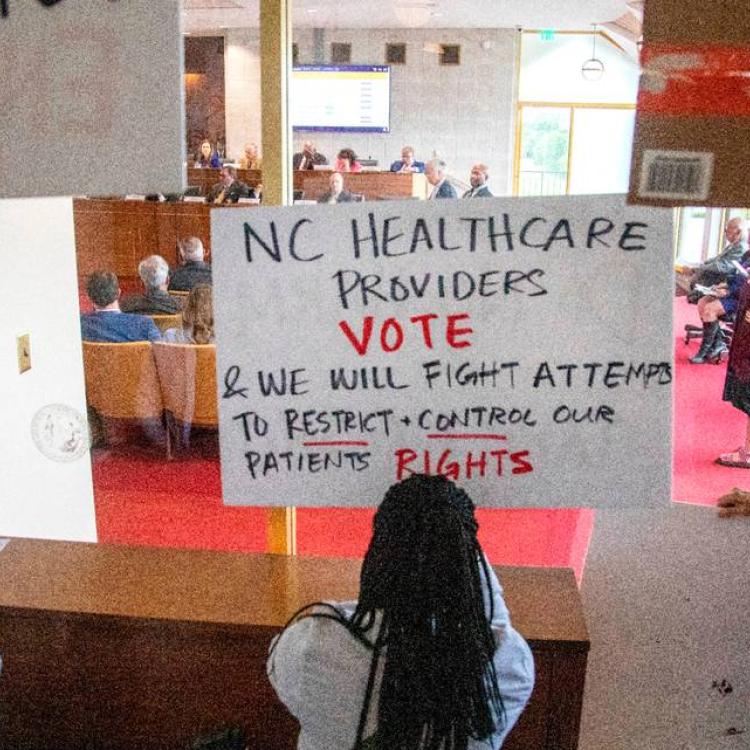 NC HEALTHCARE
PROVIDERS
VOTE
& WE WILL FIGHT ATTEMPTS
TO RESTRICT + CONTROL OUR
PATIENTS RIGHTS